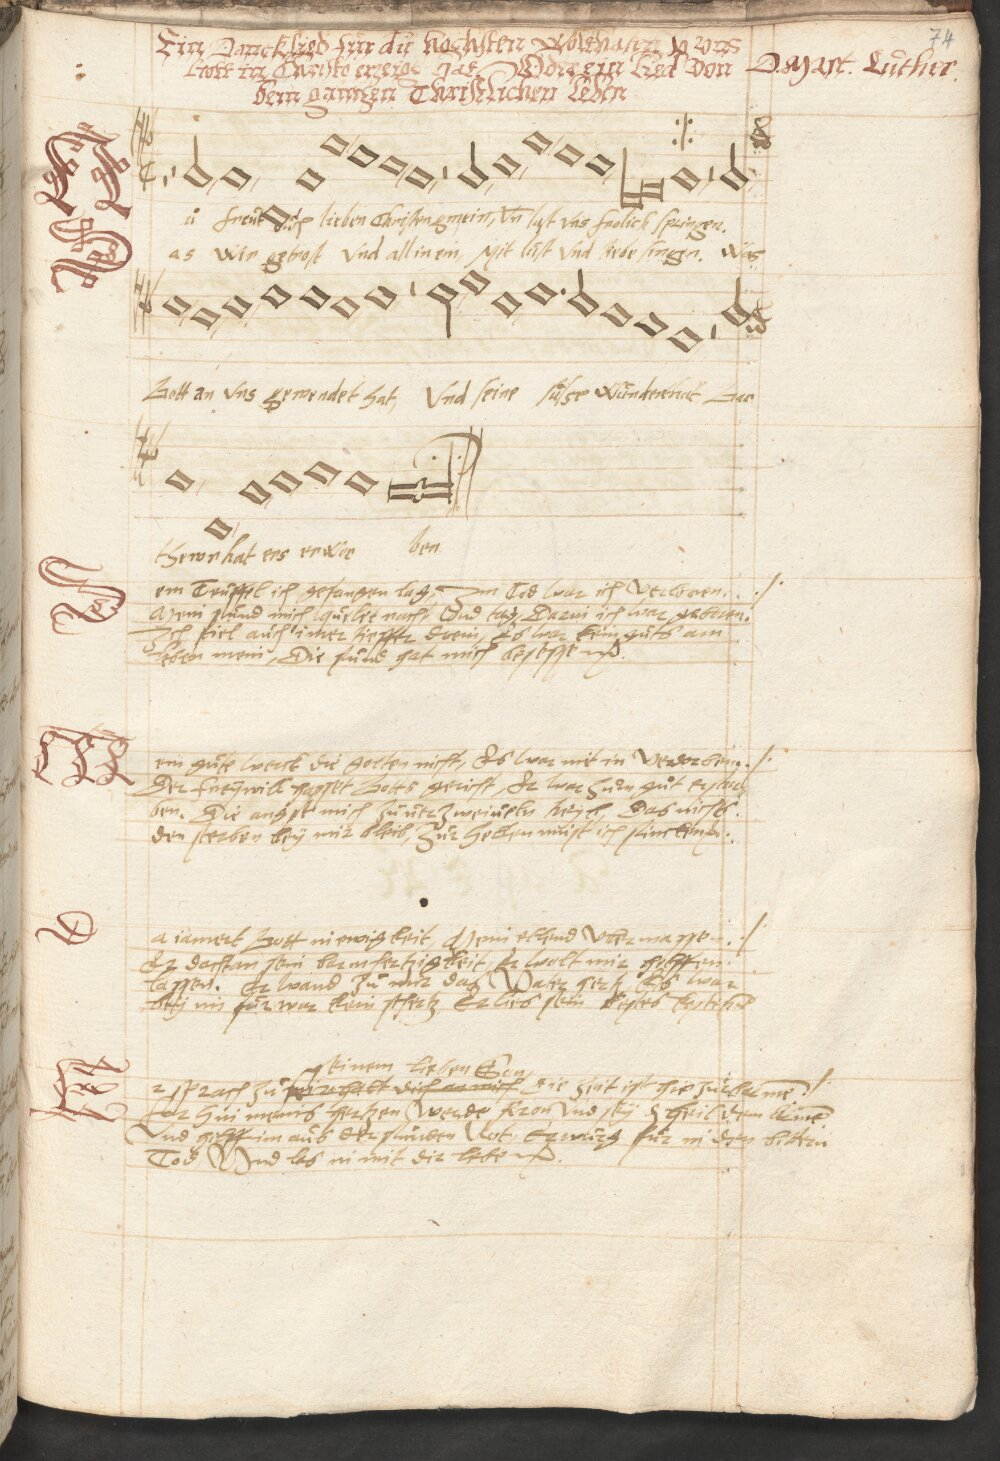 74
Ein Dancklied fur die hochsten wolthaten so uns
Gott in Christo erzeigt hat, Oder ein Lied von D. Mart. Luther.
dem gantzen Christlichen Leben
Nu freut euch lieben Christen gmein, Vn last vns frolich springen.
Das wir getrost vnd all in ein, Mit lust vnd liebe singen. Was
Gott an vns gewendet hat, Vnd seine susse wunderthat Gar
thewr hat ers erwor ben
Dem Teuffel ich gefangen lag, Im Tod war ich verloren.
Mein sund mich quelet nacht Vnd tag, Darin ich war geboren.
Ich fiel auch imer tieffer drein, Es war kein guts am
leben mein, Die sund hat mich besessen.
Mein gute werck die golten nicht, Es war mit in verdorben.
Der freywill hasset Gotts gericht, Er war zum gut erstor
ben. Die angst mich zuuerzweiueln treib, Das nichts
den sterben bey mir bleib, Zur hellen must ich sincken.
Da iamert Gott in ewigkeit, Mein ellend vbermassen.
Er dacht an sein barmhertzigkeit, Er wolt mir helffen
lassen. Er wand zu mir das Vater hertz Es war
bey im fur war kein schertz Er lies sein bestes kosten
seinem lieben Son
Er sprach zu die zeit ist hie zurbarme
Far hin meins hertzen werde kron Vnd sey das heil dem armen
Vnd hilff im aus der sunden Not Erwurg fur in den bittern
Tod Vnd las in mit dir leben.